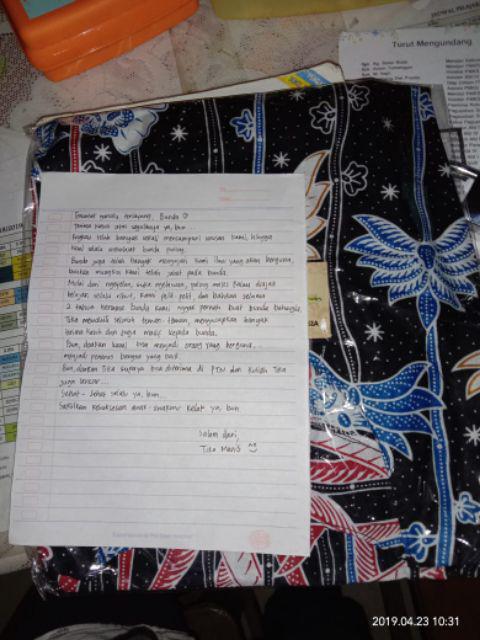 JADWAL PELAJARAN
Turut Mengundang
Teruntuk Bunda
Terima kasih atas segalanya ya, bun...
telah banyak kami, hingga
kami selalu membuat bunda pusing.
Bunda juga telah banyak mengajari kami ilmu yang akan berguna,
bahkan mungkin kami telah jahat pada bunda.
Mulai dari ngeyelan, suka melawan, paling males kalau diajak
belajar, selalu ribut, kami pelit-pelit dan bahkan selama
2 tahun bersama bunda kami nggak pernah buat bunda bahagia.
Tika mewakili seluruh teman-teman, mengucapkan banyak
terima kasih dan juga maaf kepada bunda.
Bun, doakan kami bisa menjadi orang yang berguna..
menjadi penerus bangsa yang baik.
Bun, doakan Tika supaya bisa diterima di PTN dan kuliah Tika
juga lancar...
Sehat-sehat selalu ya, bun...
Saksikan kesuksesan anak-anakmu kelak ya, bun
Salam dari,
Tika Manis
2019.04.23 10:31